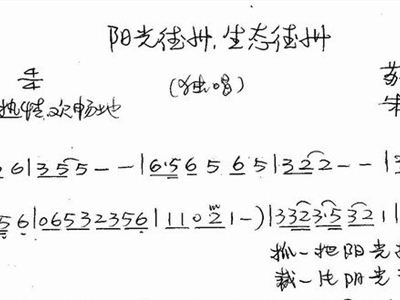 阳光德州,生态德州
(独唱)
热情、欢畅地
6|3 5 5 - -|6·5 6 5 6 5|3 2 2 - -|3
5 6|0 6 5 3 2 3 5 6|1 1 0 2 1 -)|3 3 2 3·5 3 2 1|
抓一把阳光
裁一片阴光